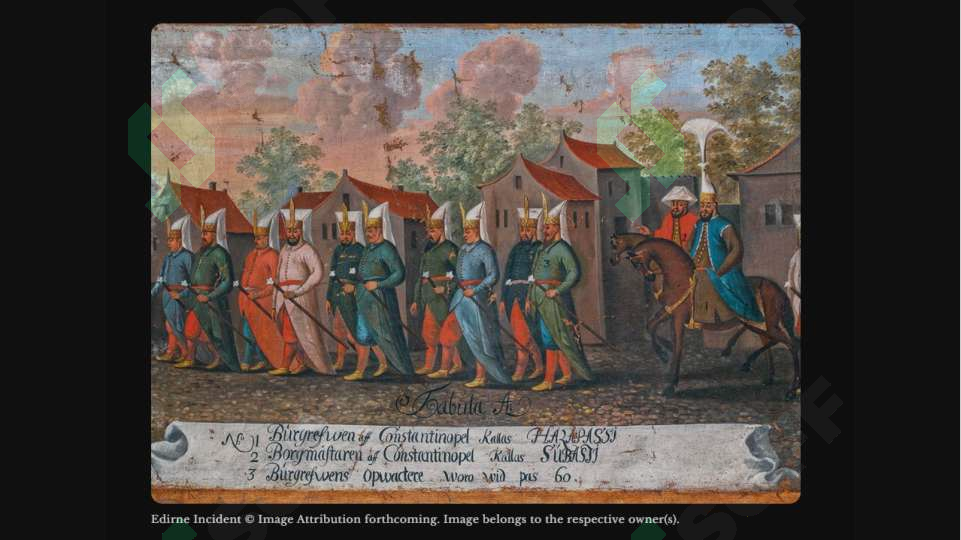 Tabula A.
No 1 Bürgrefwen af Constantinopel Kallas HAZAPASSI
2 Borgmästaren af Constantinopel Kallas SUBASSI
3 Bürgrefwens Opwactere woro wid pas 60.
3
Edirne Incident © Image Attribution forthcoming. Image belongs to the respective owner(s).